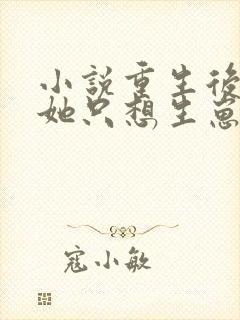 小說重生後
她只想生崽
寇小敏